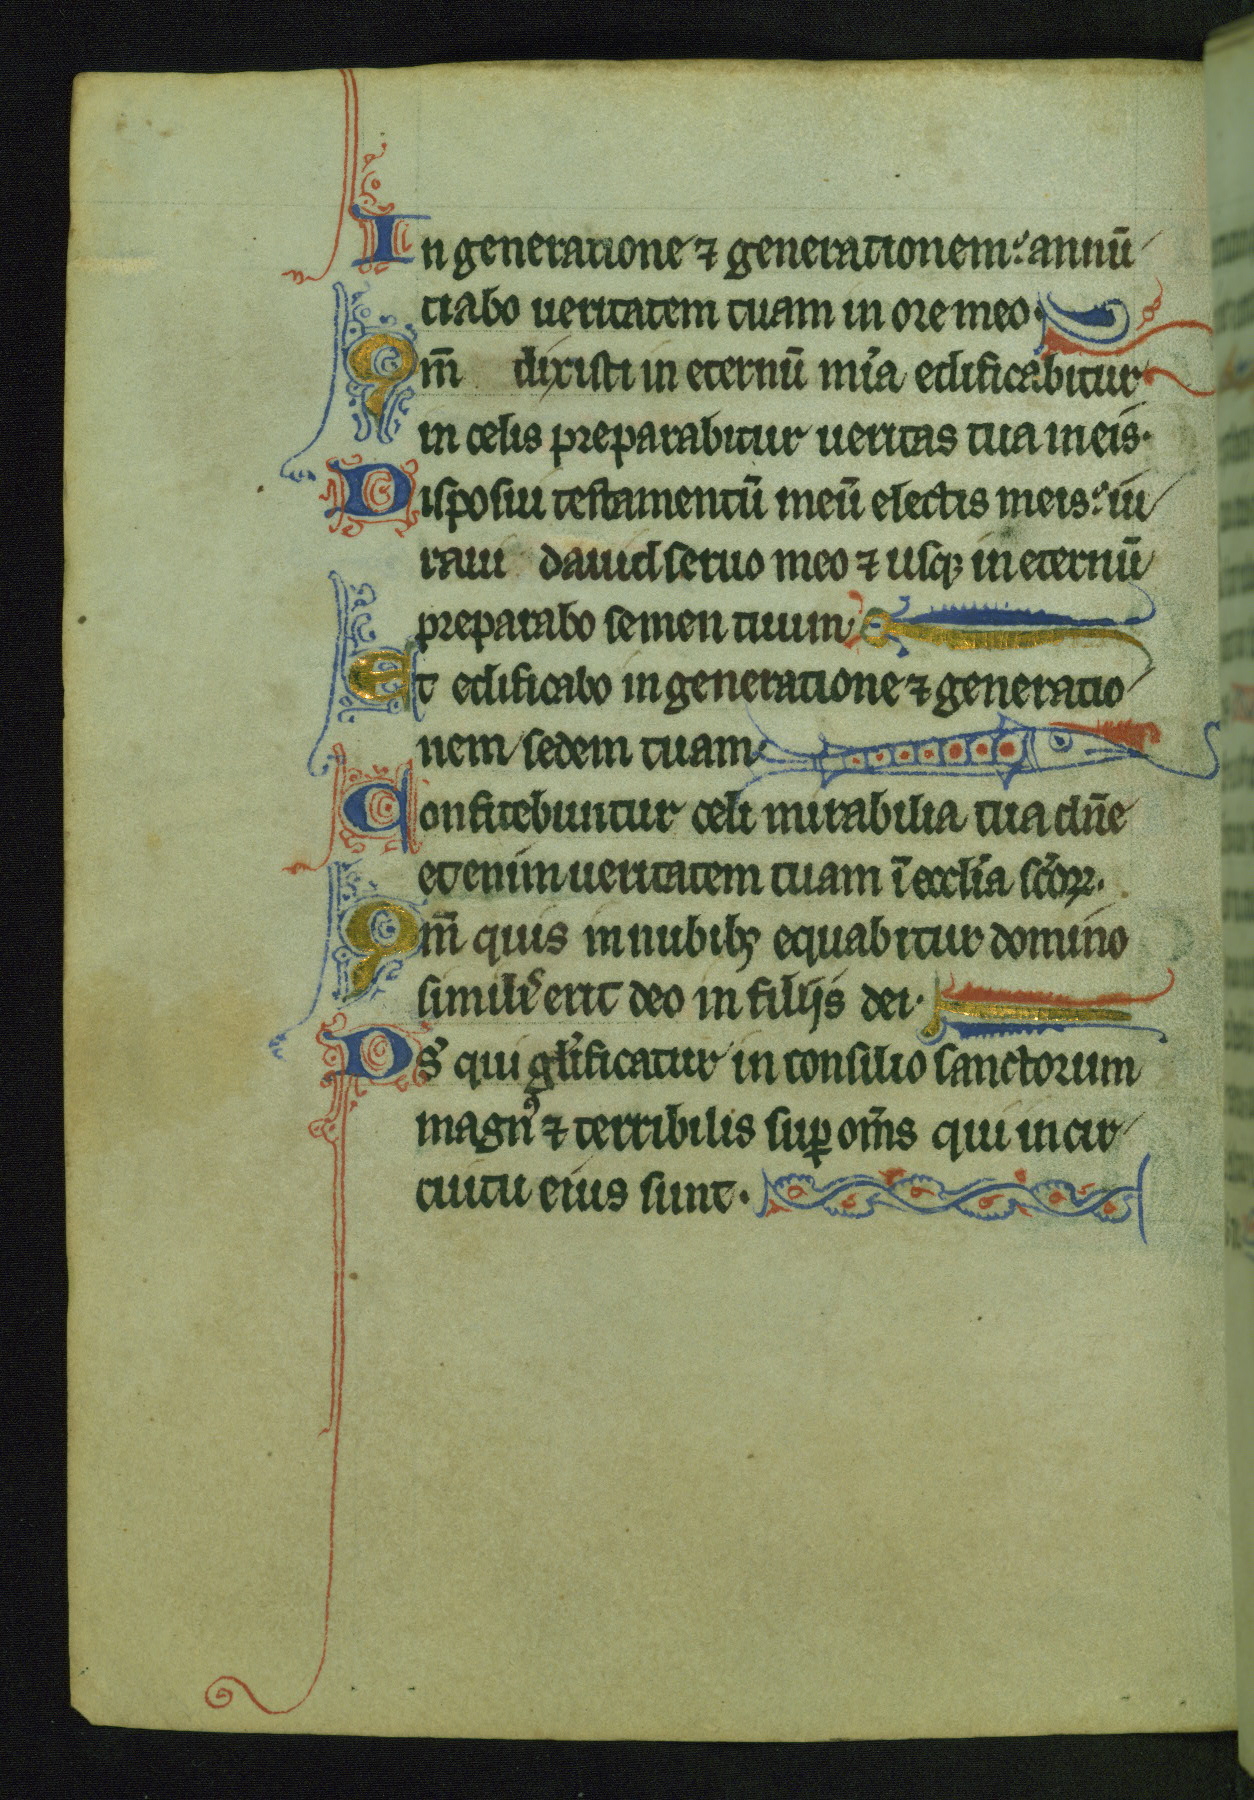 In generatione ⁊ generationem: annū
ciabo ueritatem tuam in ore meo.
Qm̄ dixisti in eternū mīa edificabitur
in celis preparabitur ueritas tua in eis.
Disposui testamentū meū electis meis: iu
raui dauid seruo meo ⁊ usq; in eternū
preparabo semen tuum.
Et edificabo in generatione ⁊ generatio
nem sedem tuam.
Confitebuntur celi mirabilia tua dn̄e
etenim ueritatem tuam ī ecclīa scōꝝ.
Qm̄ quis in nubibꝫ equabitur domino
similis erit deo in filijs dei.
Ds̄ qui glīficatur in consilio sanctorum
magnꝰ ⁊ terribilis suꝑ om̄s qui in cir
cuitu eius sunt.